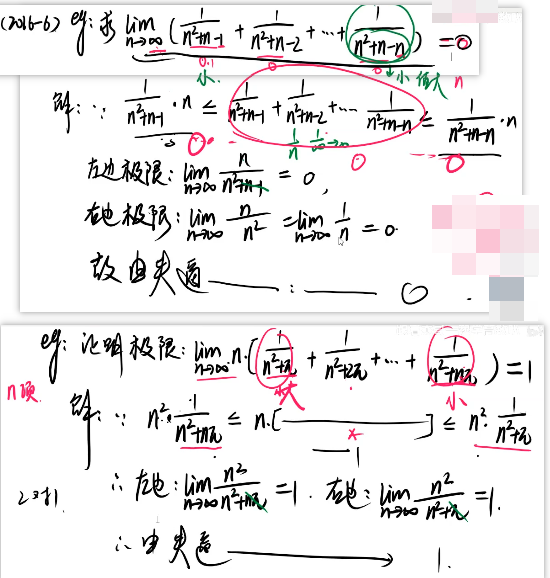 (2016-6) eg: 求 lim n→∞ (1/(n²+n-1) + 1/(n²+n-2) + ... + 1/(n²+n-n)) = 0
小. 0 ↓小 值大 n
解: ∵ 1/(n²+n-1) · n ≤ 1/(n²+n-1) + 1/(n²+n-2) + ... 1/(n²+n-n) = 1/(n²+n-n) · n
0 0 0
左边极限: lim n→∞ n/(n²+n-1) = 0,
右边极限: lim n→∞ n/n² = lim n→∞ 1/n = 0.
故由夹逼 —— : —— 0
eg: 证明极限: lim n→∞ n·[1/(n²+π) + 1/(n²+2π) + ... + 1/(n²+nπ)) = 1
n项. 大 小
解: ∵ n² · 1/(n²+nπ) ≤ n·[——] ≤ n² · 1/(n²+π)
1
∴ 左边: lim n→∞ n²/(n²+nπ) = 1. 右边: lim n→∞ n²/(n²+π) = 1.
∴ 由夹逼 ——→ 1.